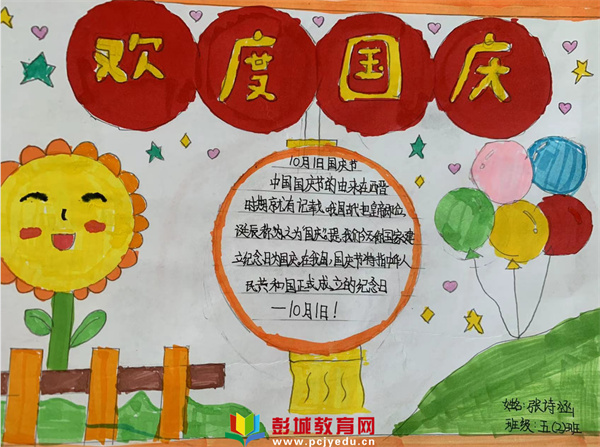 欢度国庆
10月1日国庆节
中国国庆节的由来在西晋
时期就有记载,我国古代把皇帝即位、
诞辰称为
国庆
我们今天
国家建
立纪念日为国庆,在我国,国庆节特指中华人
民共和国正式成立的纪念日
—10月1日!
姓名:张诗涵
班级:五(2)班
彭城教育网
www.pcjyedu.cn